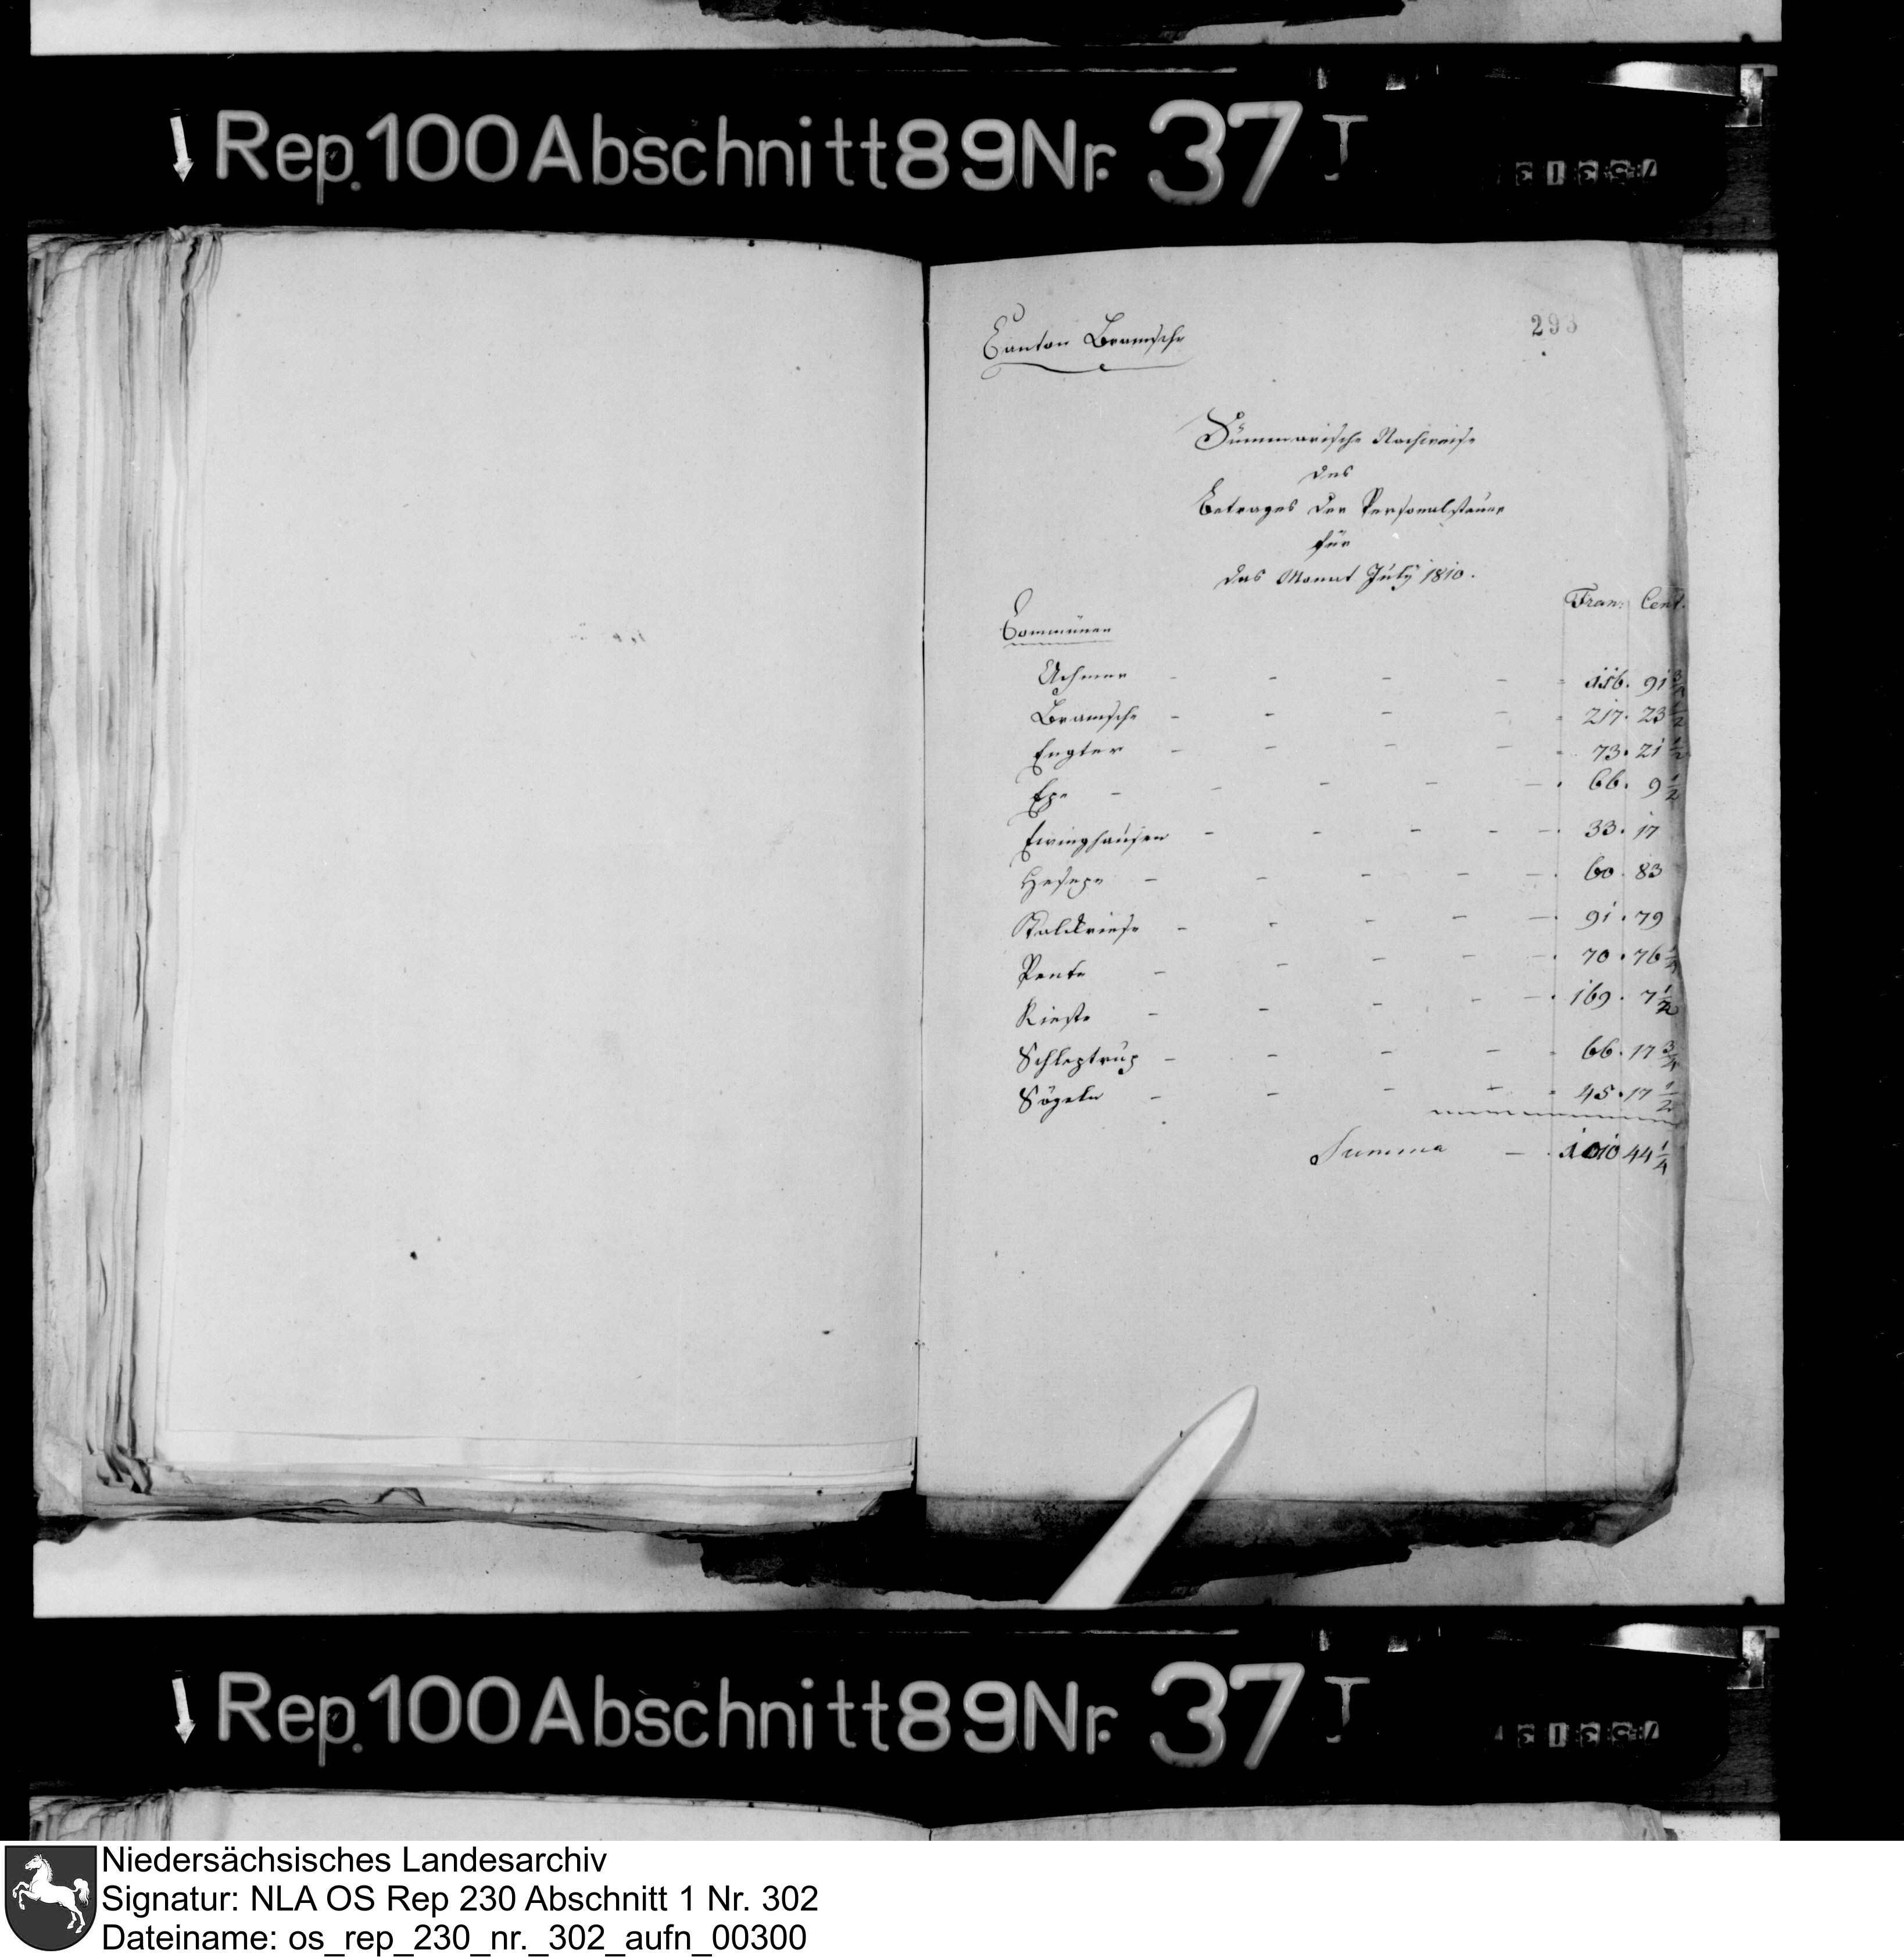 Rep. 100 Abschnitt 89 Nr. 37 I
293
Canton Bramsche
Summarische Nachweise
des
Betrages der Personalsteuer
für
das Monat July 1810.
Fran: Cent.
Communen
Achmer - - - - 116. 91 3/4
Bramsche - - - - 217. 23 1/2
Engter - - - - 73. 21 1/2
Epe - - - - - 66. 9 1/2
Ewinghausen - - - - - 33. 17
Hesepe - - - - - 60. 83
Kalkriese - - - - - 91. 79
Pente - - - - - 70. 76 1/4
Rieste - - - - - 169. 7 1/2
Schleptrup - - - - 66. 17 3/4
Sögeln - - - - 45. 17 1/2
Summa - 1010 44 1/4
Rep. 100 Abschnitt 89 Nr. 37 I
Niedersächsisches Landesarchiv
Signatur: NLA OS Rep 230 Abschnitt 1 Nr. 302
Dateiname: os_rep_230_nr._302_aufn_00300